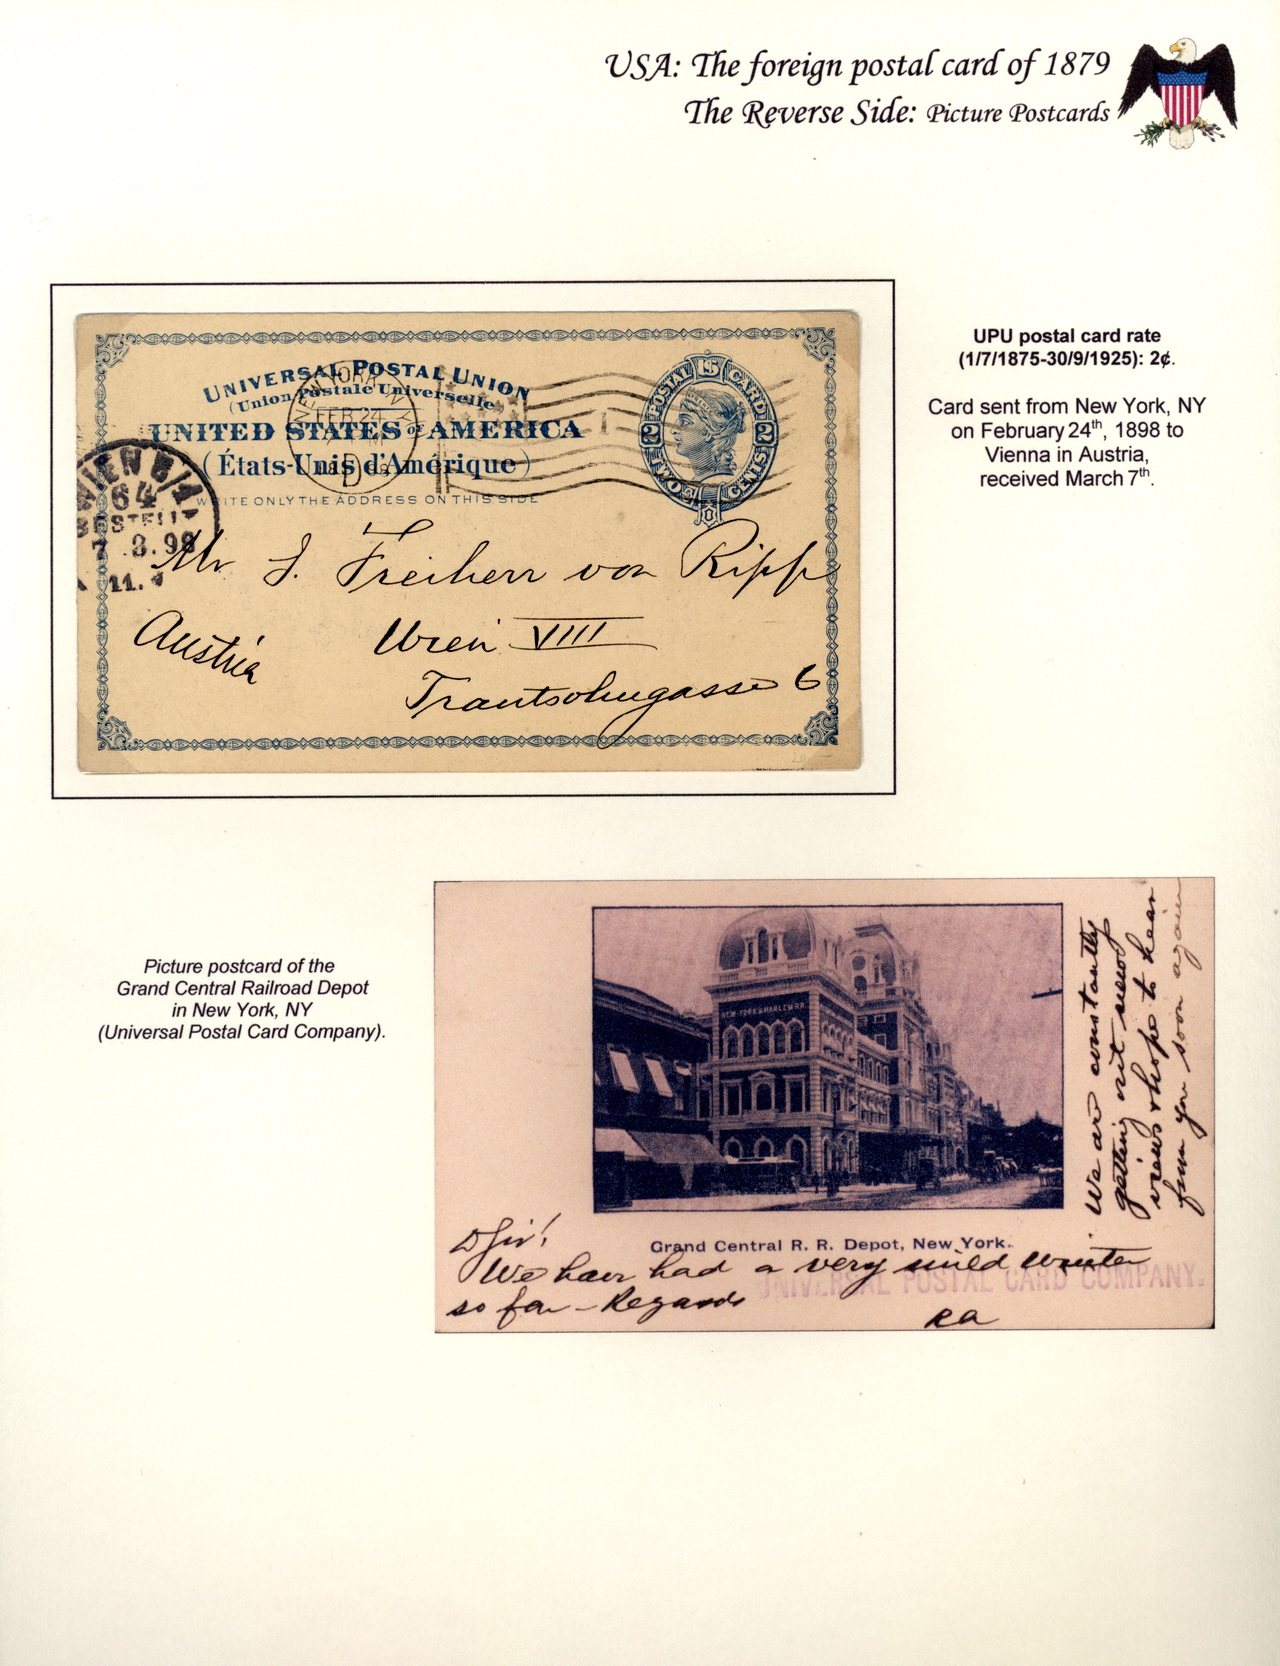 USA: The foreign postal card of 1879
The Reverse Side: Picture Postcards
UPU postal card rate
(1/7/1875-30/9/1925): 2¢.
Card sent from New York, NY
on February 24th, 1898 to
Vienna in Austria,
received March 7th.
UNIVERSAL POSTAL UNION
(Union Postale Universelle)
UNITED STATES OF AMERICA
(États-Unis d'Amérique)
WRITE ONLY THE ADDRESS ON THIS SIDE
NEW YORK, N.Y.
FEB 24
D
1
U.S.
POSTAL CARD
2 2
TWO CENTS
WIEN 8/1
64
BESTELLT
7.3.98
11.
Mr J. Freiherr von Ripp
Wien VIII
Austria
Trautsohngasse 6
Picture postcard of the
Grand Central Railroad Depot
in New York, NY
(Universal Postal Card Company).
NEW-YORK & HARLEM R.R.
We are constantly
getting out new
views & hope to hear
from you soon again
Grand Central R. R. Depot, New York.
UNIVERSAL POSTAL CARD COMPANY.
D Sir!
We have had a very mild Winter
so far - Regards
RA